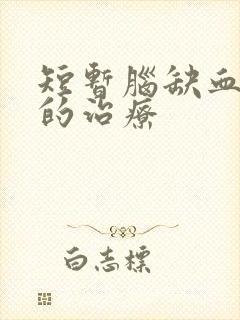 短暫腦缺血
的治療
白志標